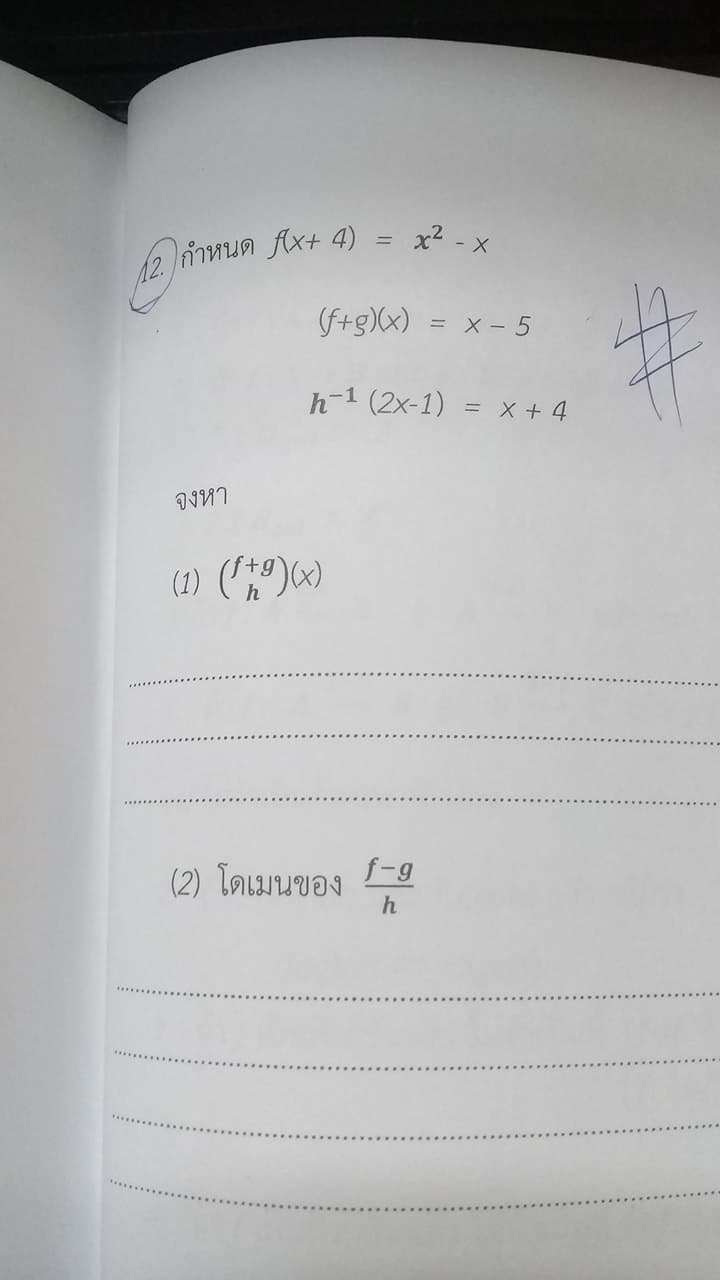 12. กำหนด f(x+ 4) = x² - x
(f+g)(x) = x – 5
h⁻¹ (2x-1) = x + 4
จงหา
(1) (f+g / h)(x)
(2) โดเมนของ f−g / h